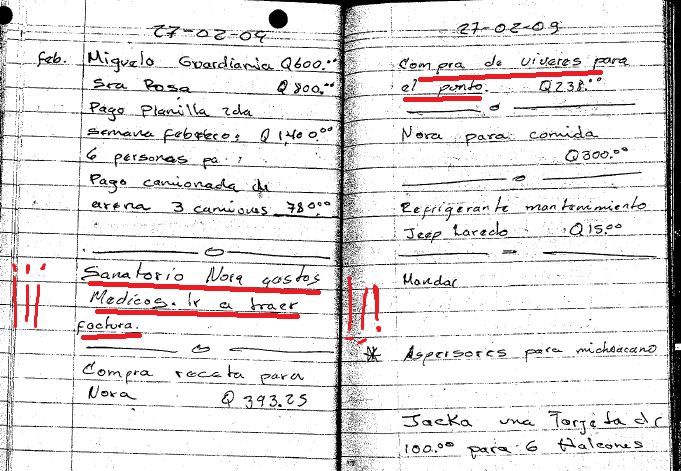 27-02-09
Feb. Miguelo Guardiania Q600.00
Sra Rosa Q800.00
Pago Planilla 2da
semana febrero: Q 1,400.00
6 personas pa :
Pago camionada de
arena 3 camiones 780.00
Sanatorio Nora gastos
Medicos. Ir a traer
factura.
Compra receta para
Nora Q 393.25
27-02-09
Compra de viveres para
el punto. Q238.00
Nora para comida
Q300.00
Refrigerante mantenimiento
Jeep Laredo Q15.00
Mandar
* Aspersores para michoacano
Jacka una Tarjeta de
100.00 para 6 Halcones